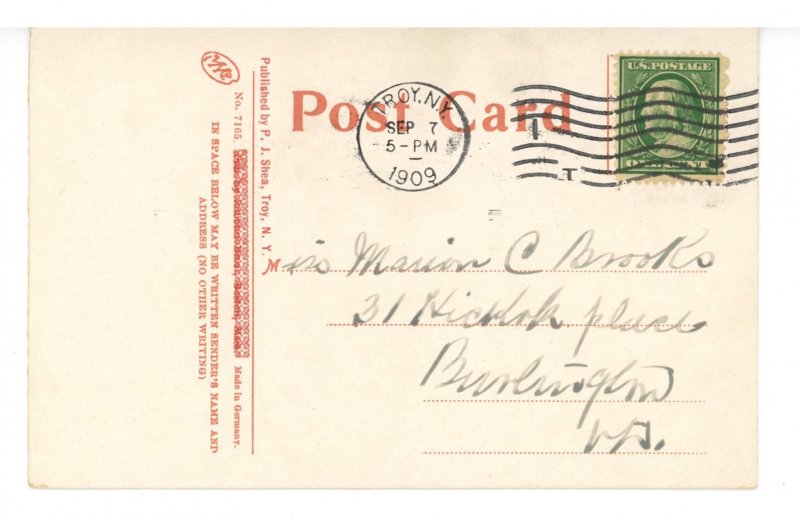 Post Card
TROY, N.Y.
SEP 7
5-PM
1909
U.S. POSTAGE
ONE CENT
Miss Marion C Brooks
31 Hickok place
Burlington
Vt.
Published by P. J. Shea, Troy, N. Y.
No. 7165.
Made in Germany.
IN SPACE BELOW MAY BE WRITTEN SENDER'S NAME AND
ADDRESS (NO OTHER WRITING)